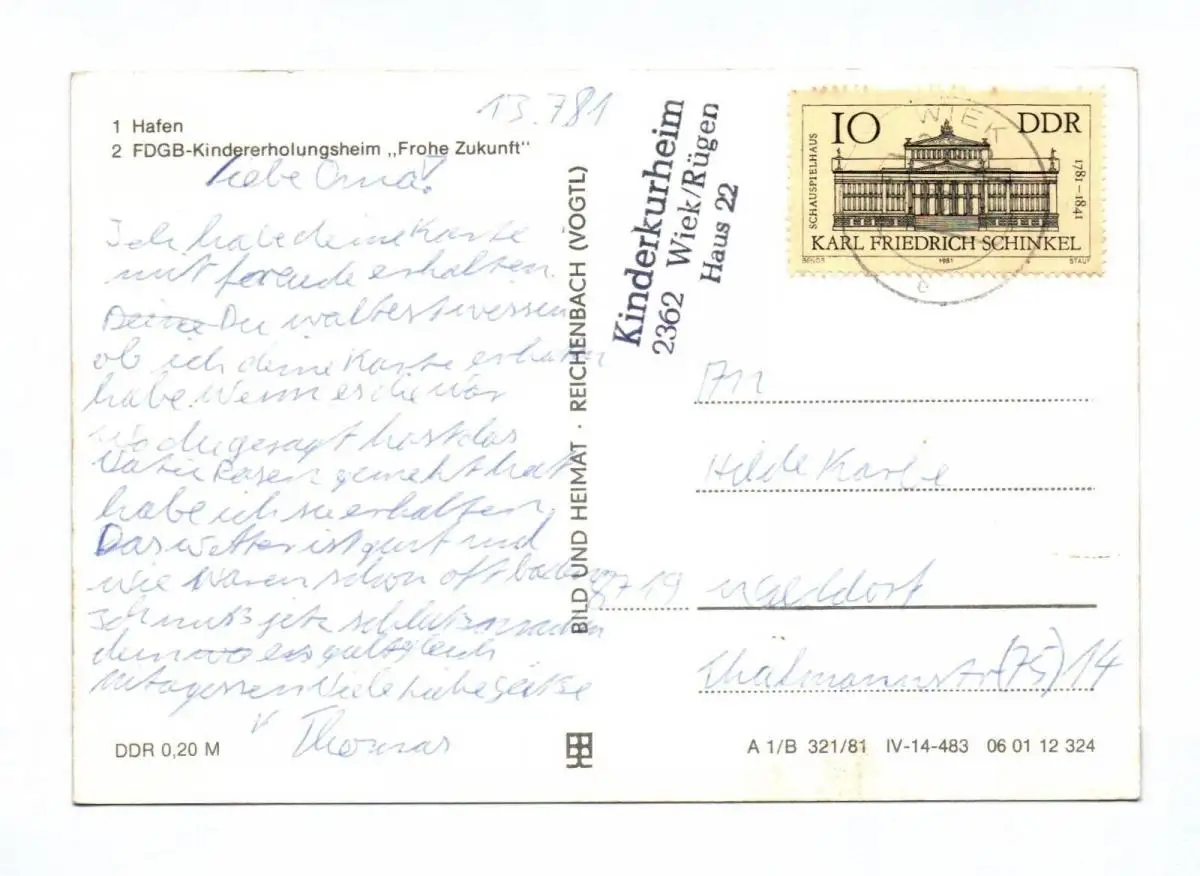 13.781
1 Hafen
2 FDGB-Kindererholungsheim „Frohe Zukunft"
Liebe Oma!
Ich habe deine Karte
mit freude erhalten.
Deine Du wolltest wissen
ob ich deine Karte erhalten
habe. Wenn es die war
wo du gesagt hast das
Vati Rasen gemeht hat
habe ich sie erhalten.
Das wetter ist gut und
wie waren schon oft baden
Ich muß jetz schluß machen
denn es gibt gleich
Mitagessen Viele liebe
Thomas
DDR 0,20 M
BILD UND HEIMAT · REICHENBACH (VOGTL)
Kinderkurheim
2362 Wiek/Rügen
Haus 22
WIEK
10 DDR
SCHAUSPIELHAUS
1781–1841
KARL FRIEDRICH SCHINKEL
1981 STAUF
An
Hilde Karbe
8719
Thälmannstr (75) 14
A 1/B 321/81 IV-14-483 06 01 12 324